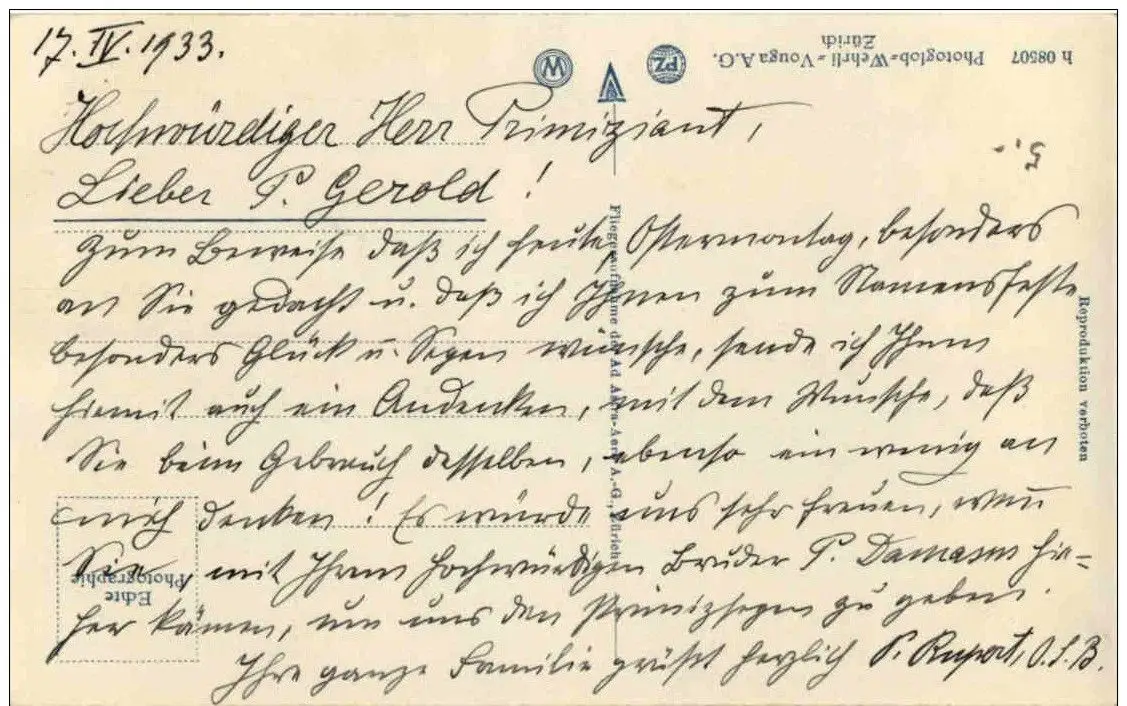 17. IV. 1933.
h 08507 Photoglob-Wehrli-Vouga A.G. Zürich
M
PZ
5.-
Hochwürdiger Herr Primiziant,
Lieber P. Gerold!
Zum Beweise daß ich heute, Ostermontag, besonders
an Sie gedacht u. daß ich Ihnen zum Namensfeste
besonders Glück u. Segen wünsche, sende ich Ihnen
hiemit auch ein Andenken, mit dem Wunsche, daß
Sie beim Gebrauch desselben, ebenso ein wenig an
mich denken! Es würde uns sehr freuen, wenn
Sie mit Ihrem hochwürdigen Bruder P. Damasus hie=
her kämen, um uns den Primizsegen zu geben.
Ihre ganze Familie grüßt herzlich P. Rupert, O.S.B.
Fliegeraufnahme der Ad Astra-Aero A.-G., Zürich
Reproduktion verboten
Echte
Photographie